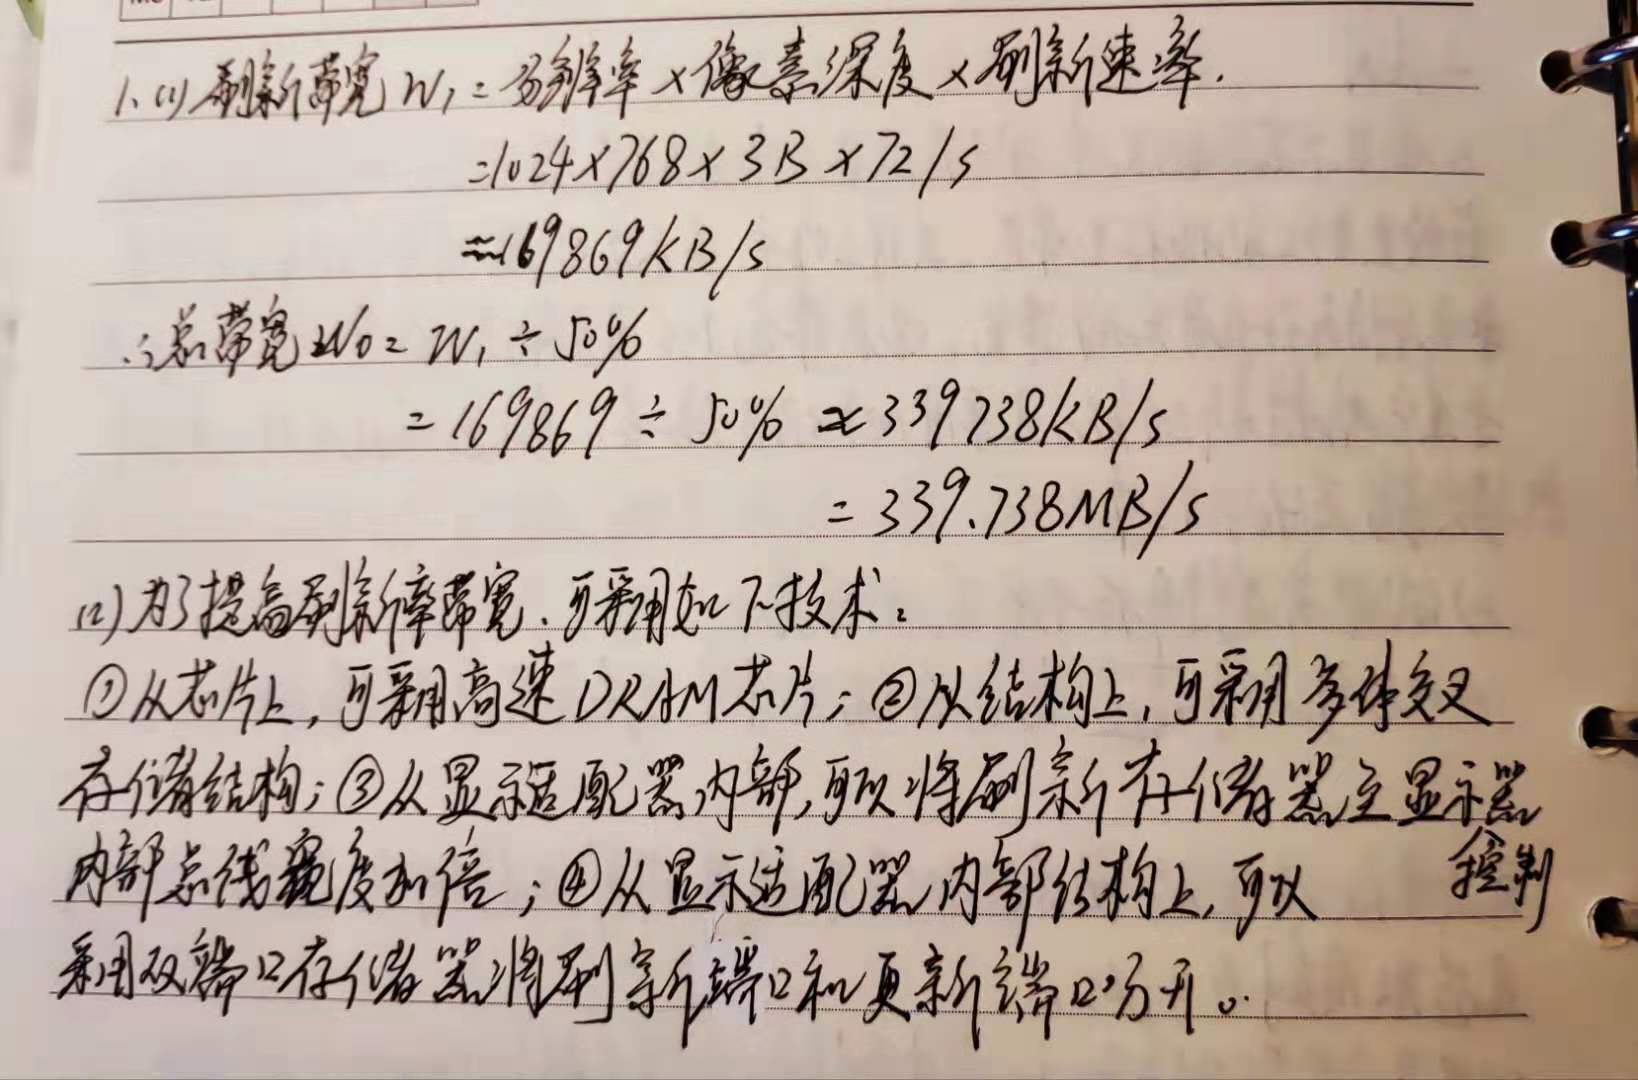 1. (1) 刷新带宽 W₁ = 分辨率 × 像素深度 × 刷新速率.
=1024×768×3B×72/s
≈169869KB/s
∴总带宽W₀= W₁ ÷ 50%
= 169869 ÷ 50% ≈ 339738KB/s
= 339.738MB/s
(2) 为了提高刷新率带宽,可采用如下技术:
①从芯片上,可采用高速DRAM芯片;②从结构上,可采用多体交叉
存储结构;③从显示适配器内部,可以将刷新存储器至显示器
控制
内部总线宽度加倍;④从显示适配器内部结构上,可以
采用双端口存储器将刷新端口和更新端口分开。